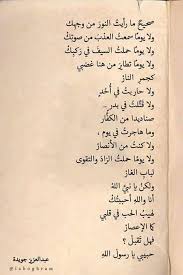 صحيحٌ ما رأيتُ النورَ من وجهِك
ولا يومًا سمعتُ العذبَ من صوتِك
ولا يومًا حملتُ السيفَ في ركبِك
ولا يومًا تطايرَ من هنا غضبي
كجمرِ النارْ
ولا حاربتُ في أُحُدٍ
ولا قتَّلتُ في بدرٍ
صناديدا من الكفَّارْ
وما هاجرتُ في يوم ،
ولا كنتُ من الأنصارْ
ولا يومًا حملتُ الزادَ والتقوى
لبابِ الغارْ
ولكنْ يا نبيَّ اللهْ
أنا واللهِ أحببتُك
لهيبُ الحبِ في قلبي
كما الإعصارْ
فهل تَقبل ؟
حبيبي يا رسولَ اللهْ
عبدالعزيز جويدة